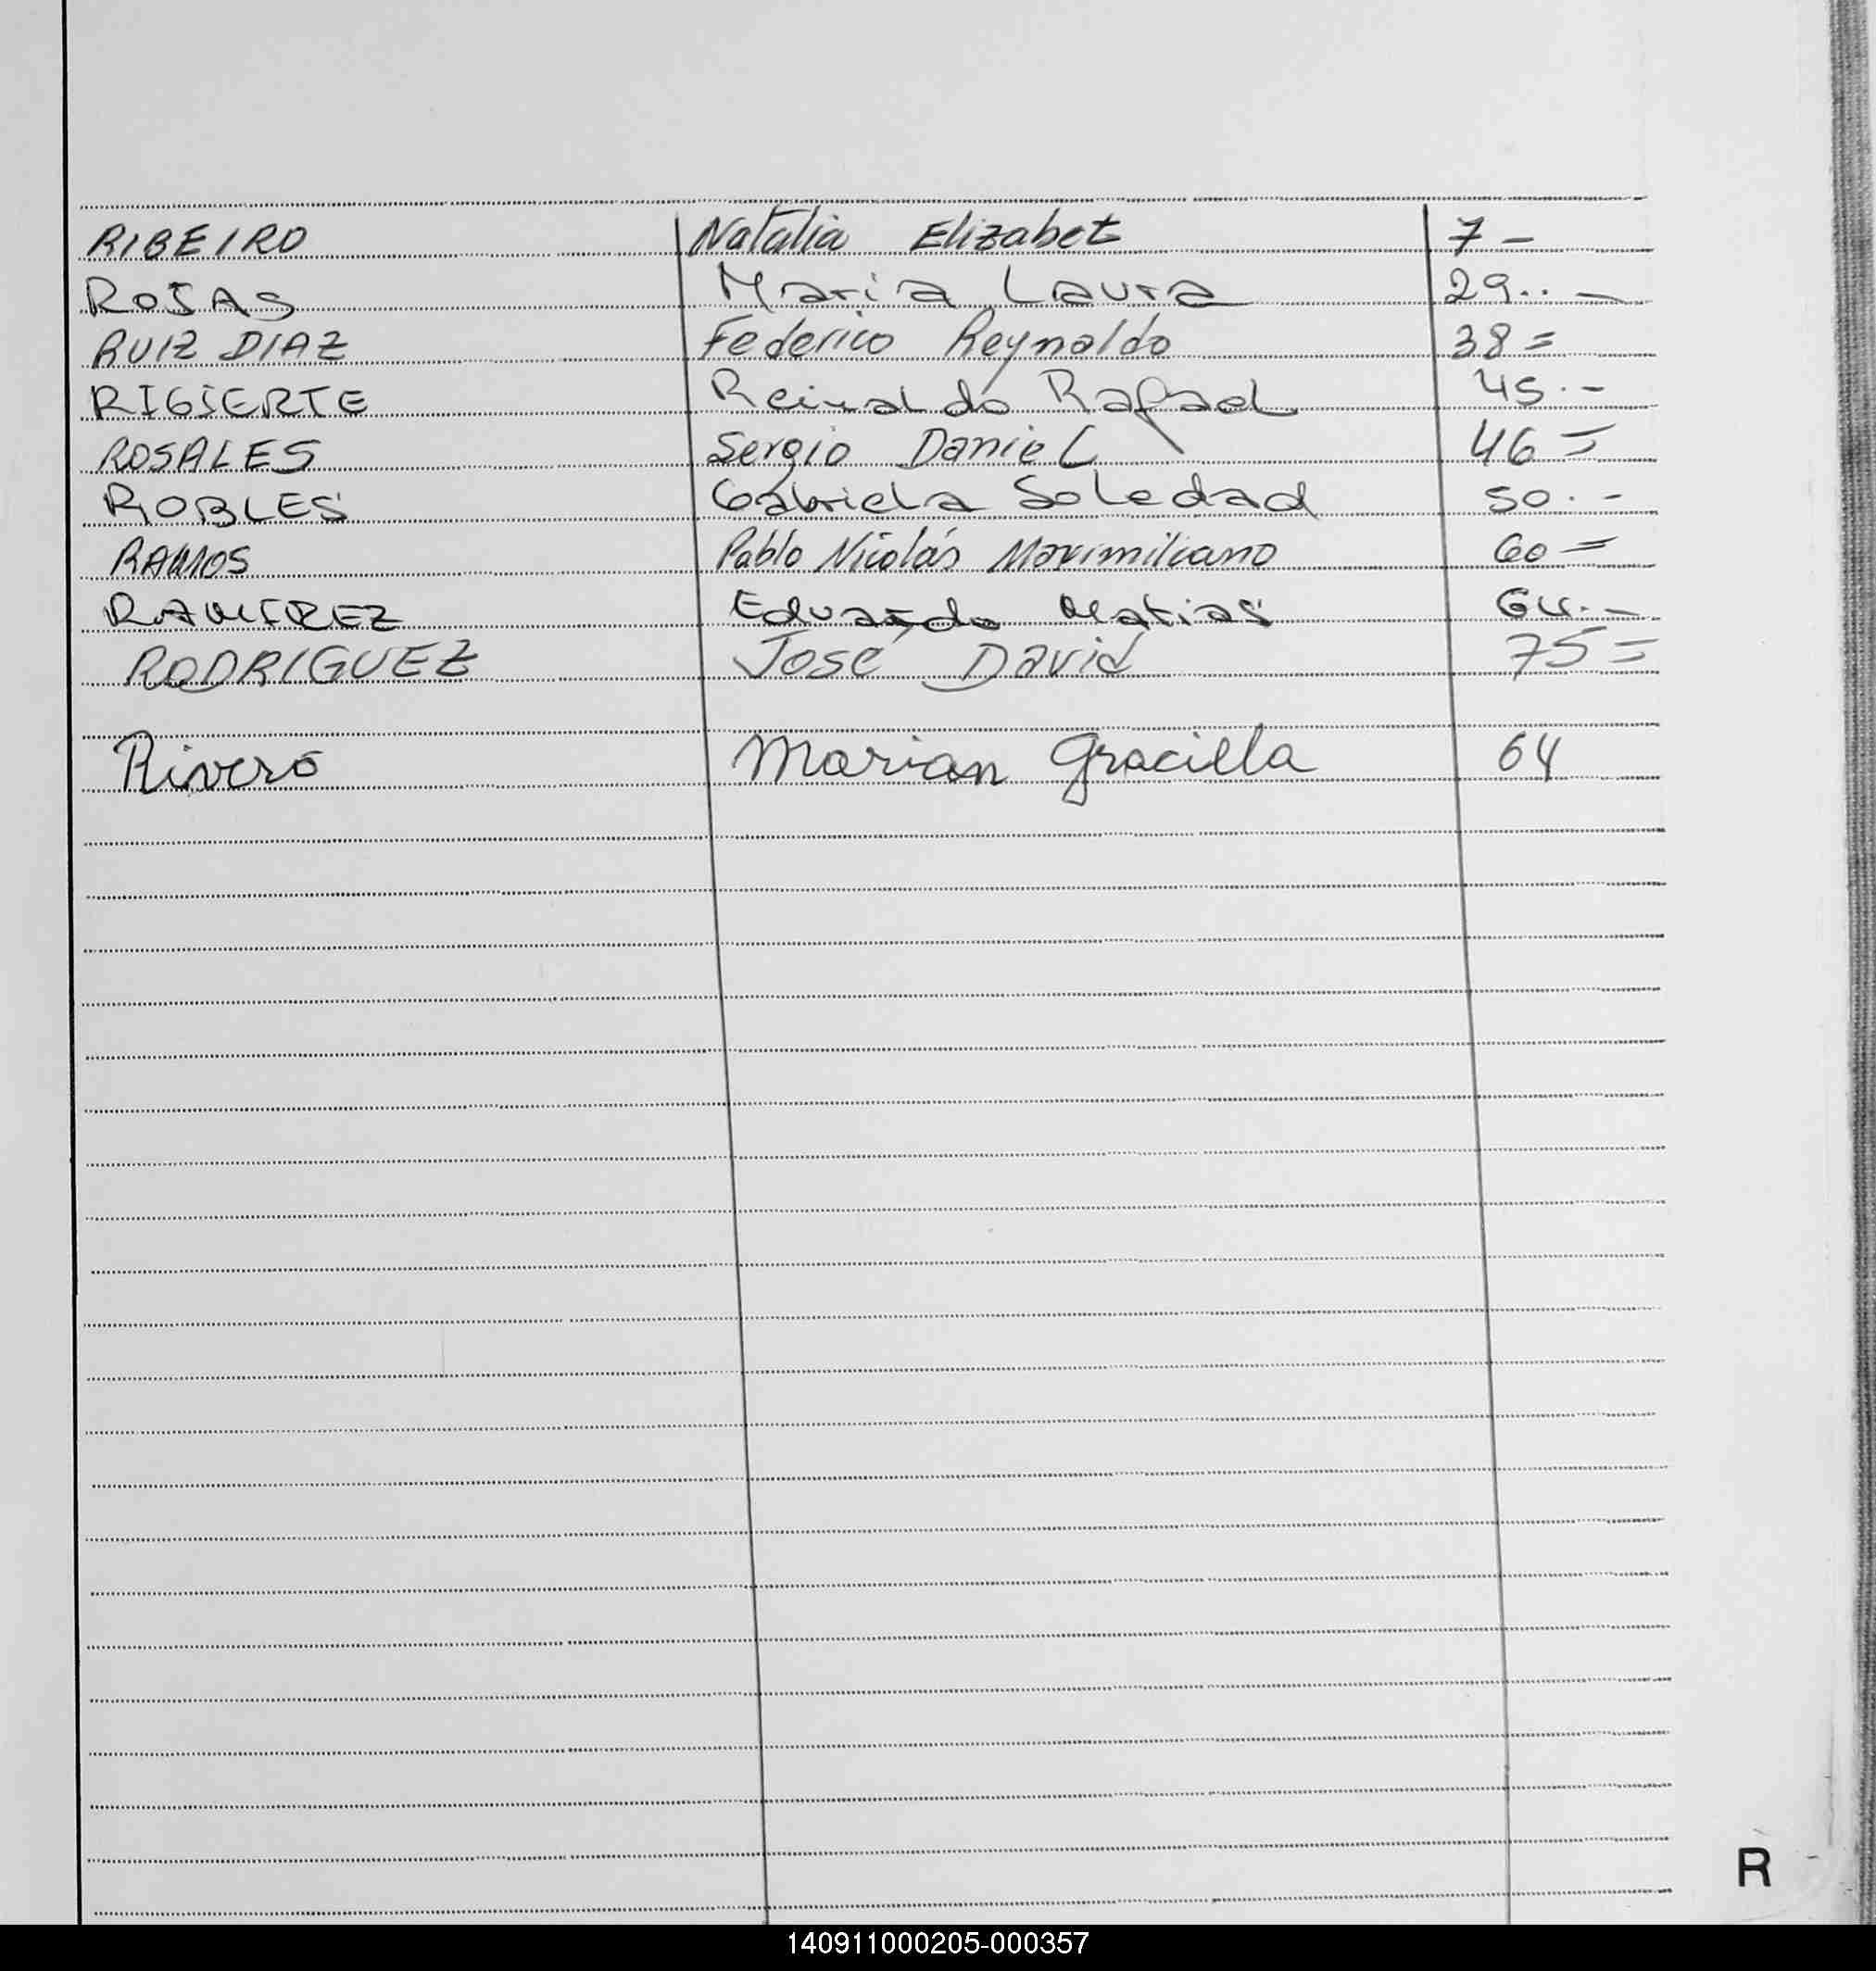 RIBEIRO Natalia Elizabet 7 -
ROJAS Maria Laura 29.. -
RUIZ DIAZ Federico Reynaldo 38 =
RIGIERTE Reinaldo Rafael 45.-
ROSALES Sergio Daniel 46 =
ROBLES Gabriela Soledad 50.-
RAMOS Pablo Nicolás Maximiliano 60 =
RAMIREZ Eduardo Matias 64.-
RODRIGUEZ José David 75 =
Rivero Marian Gracilla 64
R
140911000205-000357